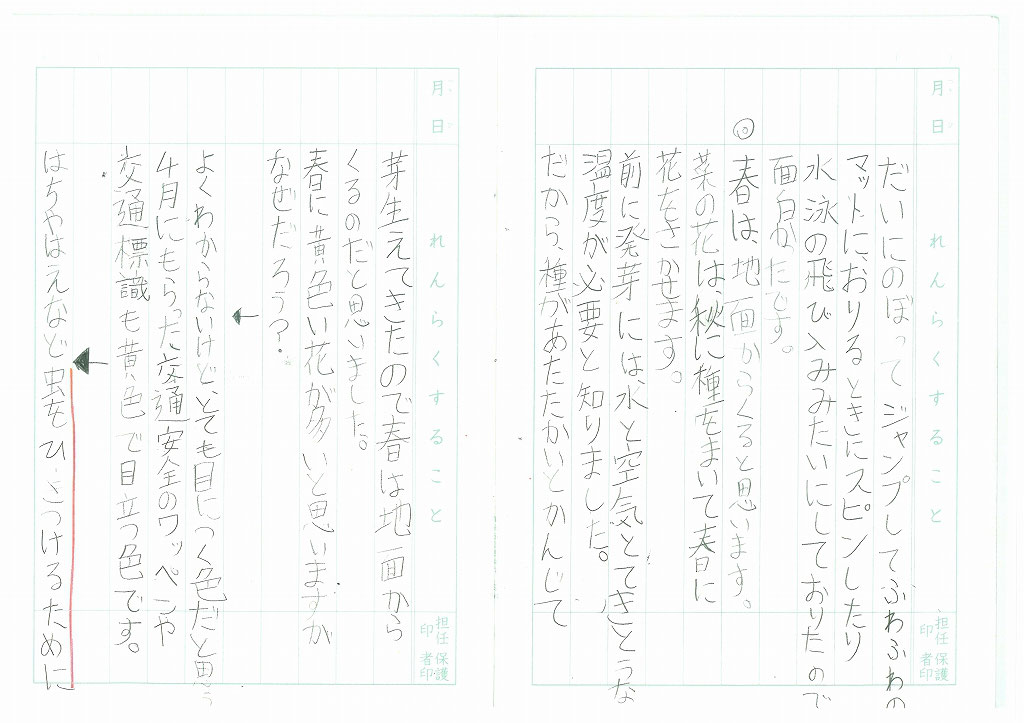 月 日
れんらくすること
担任印 保護者印
だいにのぼって ジャンプしてふわふわの
マットに、おりるときにスピンしたり
水泳の飛び込みみたいにしておりたので
面白かったです。
◎春は、地面からくると思います。
菜の花は、秋に種をまいて春に
花をさかせます。
前に発芽には、水と空気とてきとうな
温度が必要と知りました。
だから、種があたたかいとかんじて
月 日
れんらくすること
担任印 保護者印
芽生えてきたので春は地面から
くるのだと思いました。
春に黄色い花が多いと思いますが
なぜだろう?
よくわからないけど、とても目につく色だと思う
4月にもらった、交通安全のワッペンや
交通標識も黄色で目立つ色です。
はちやはえなど虫をひきつけるために